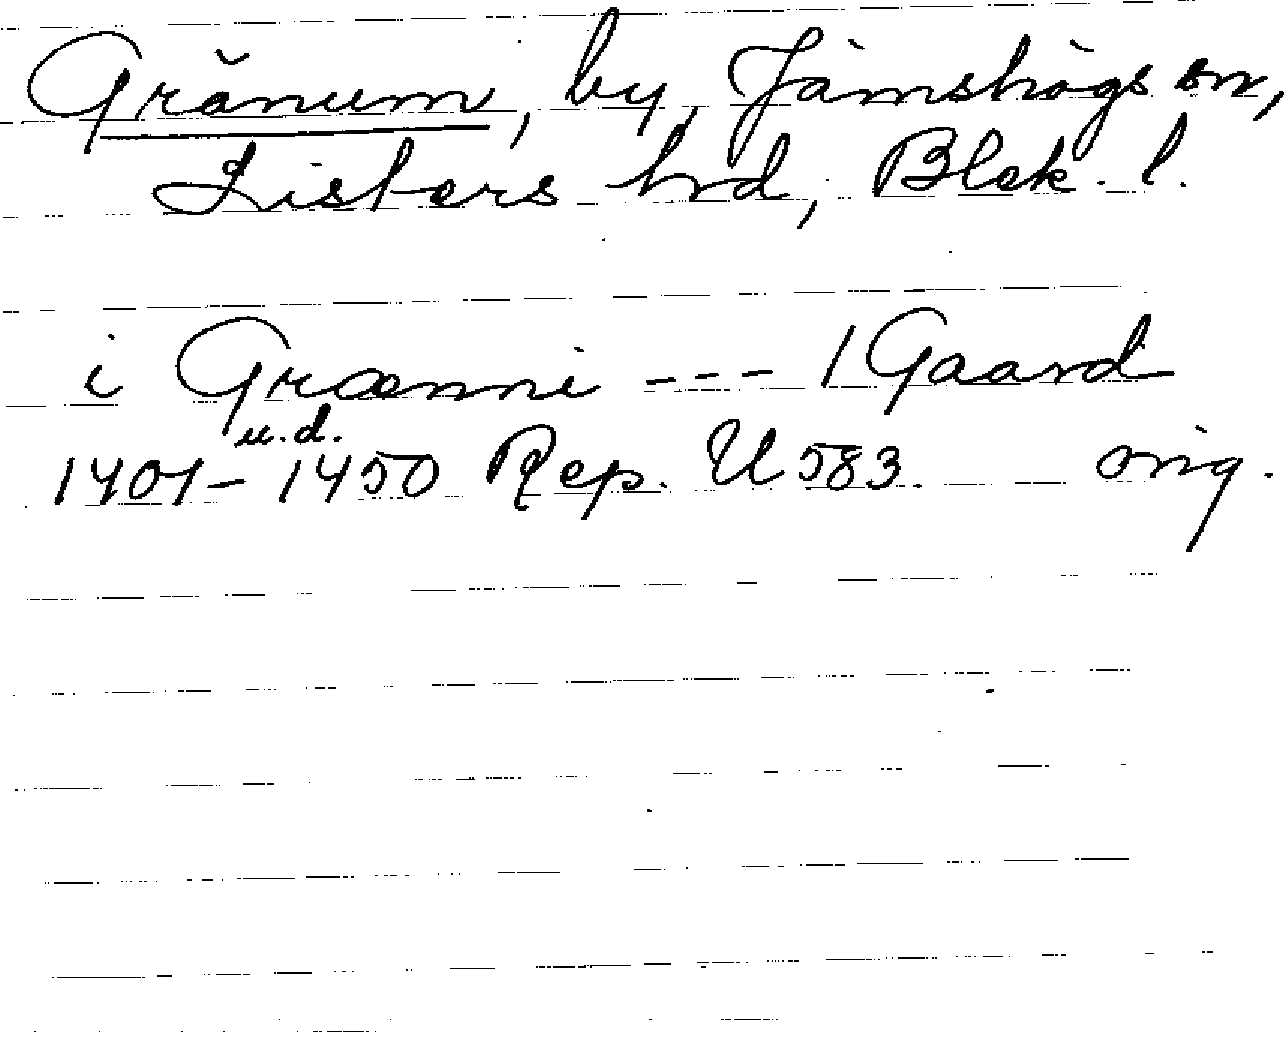 Gränum, by, Jämshögs sn,
Listers hd, Blek. l.
i Grænni --- 1 Gaard
u.d.
1401-1450 Rep. II 583. orig.